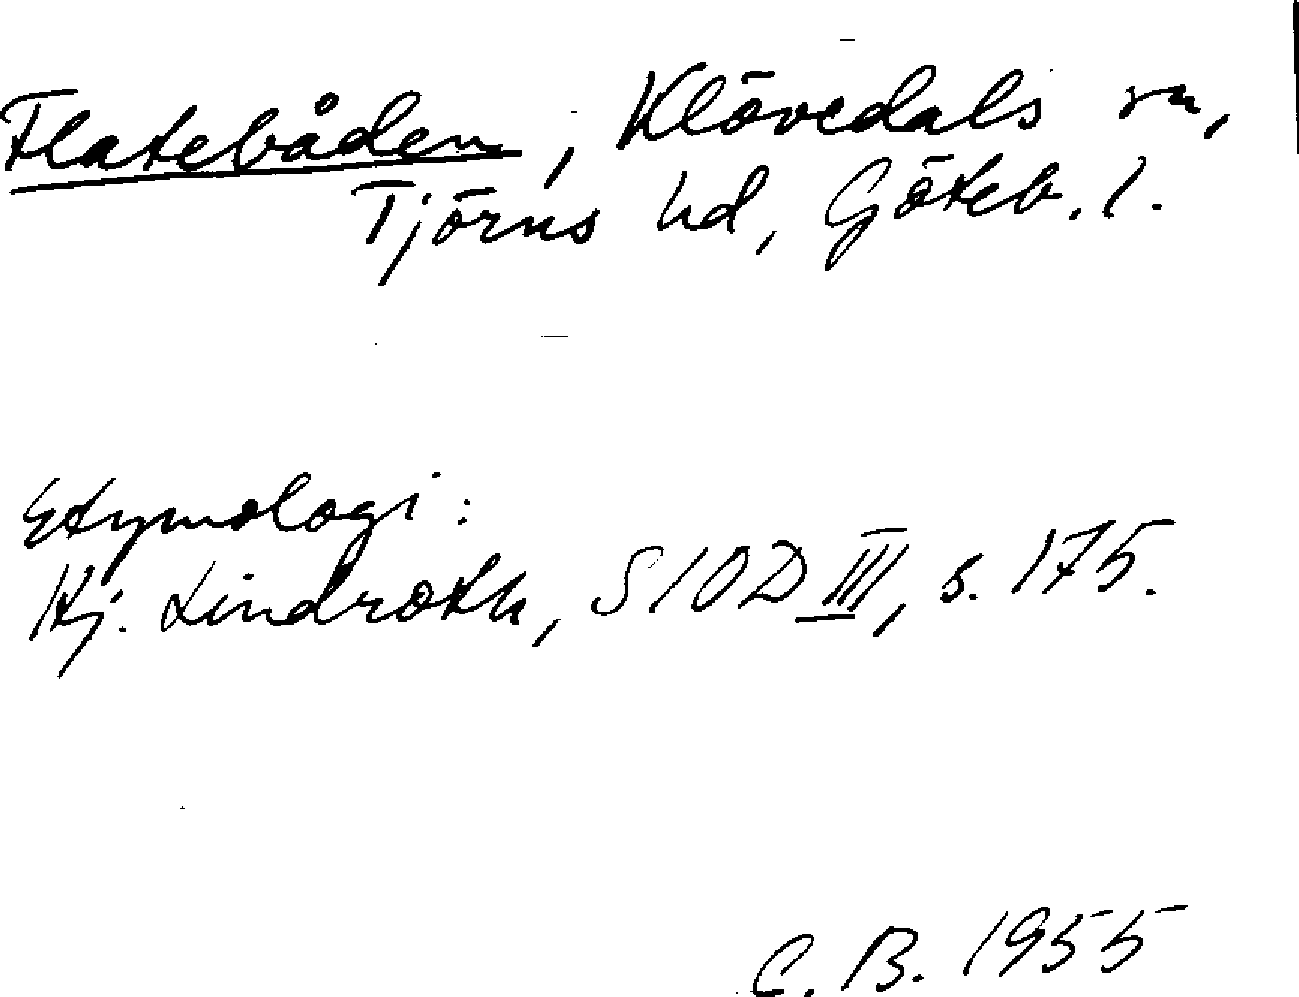 Flatebåden, Klövedals sn,
Tjörns hd, Göteb. l.
Etymologi:
Hj. Lindroth, SIOD III, s. 175.
C. B. 1955